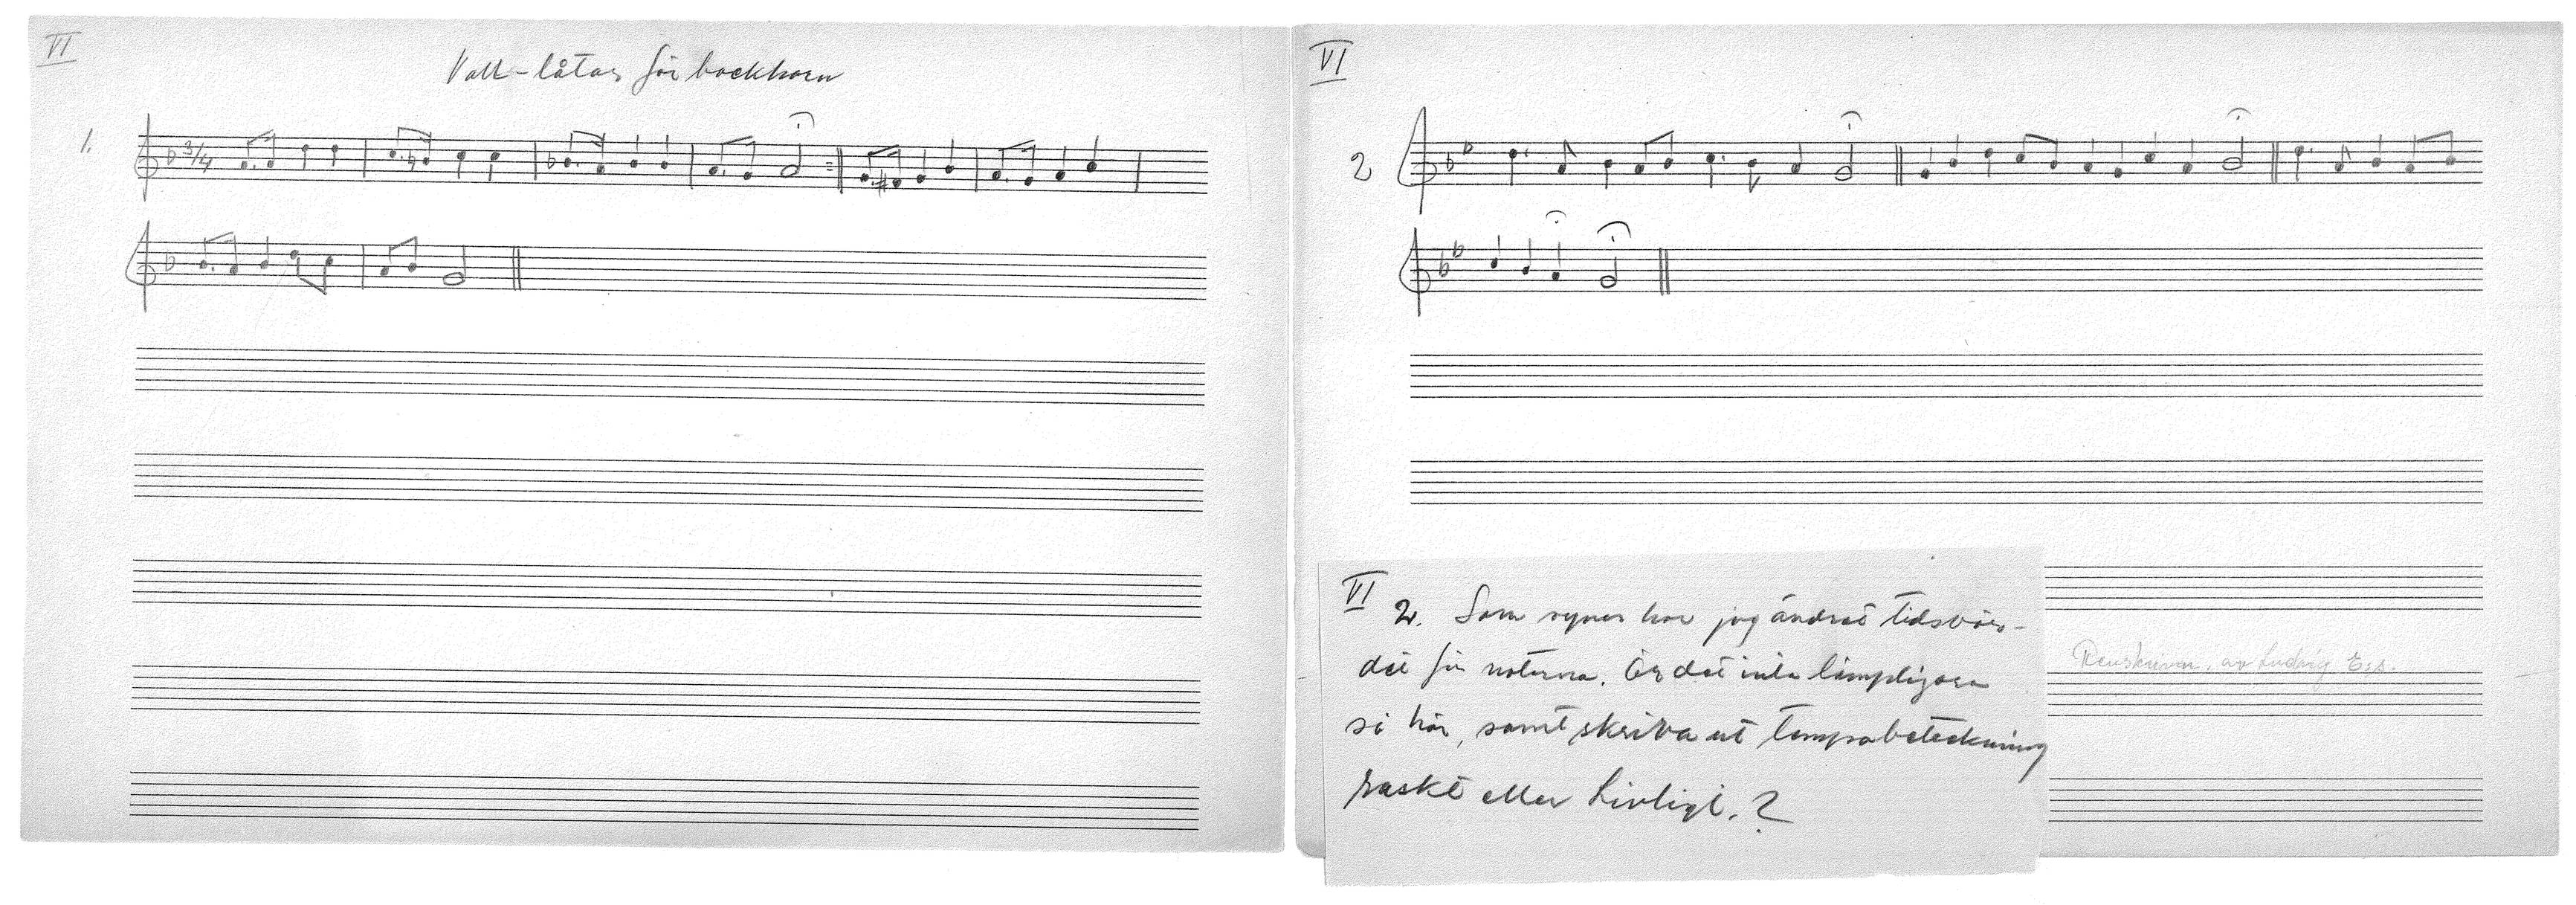 VI
Vall-låtar för bockhorn
1.
3/4
VI
2
VI
2. Som synes har jag ändrat tidsvär-
det för noterna. Är det inte lämpligare
så här, samt skriva ut tempobeteckning
raskt eller livligt.?
Renskriven. av Ludvig E:s.